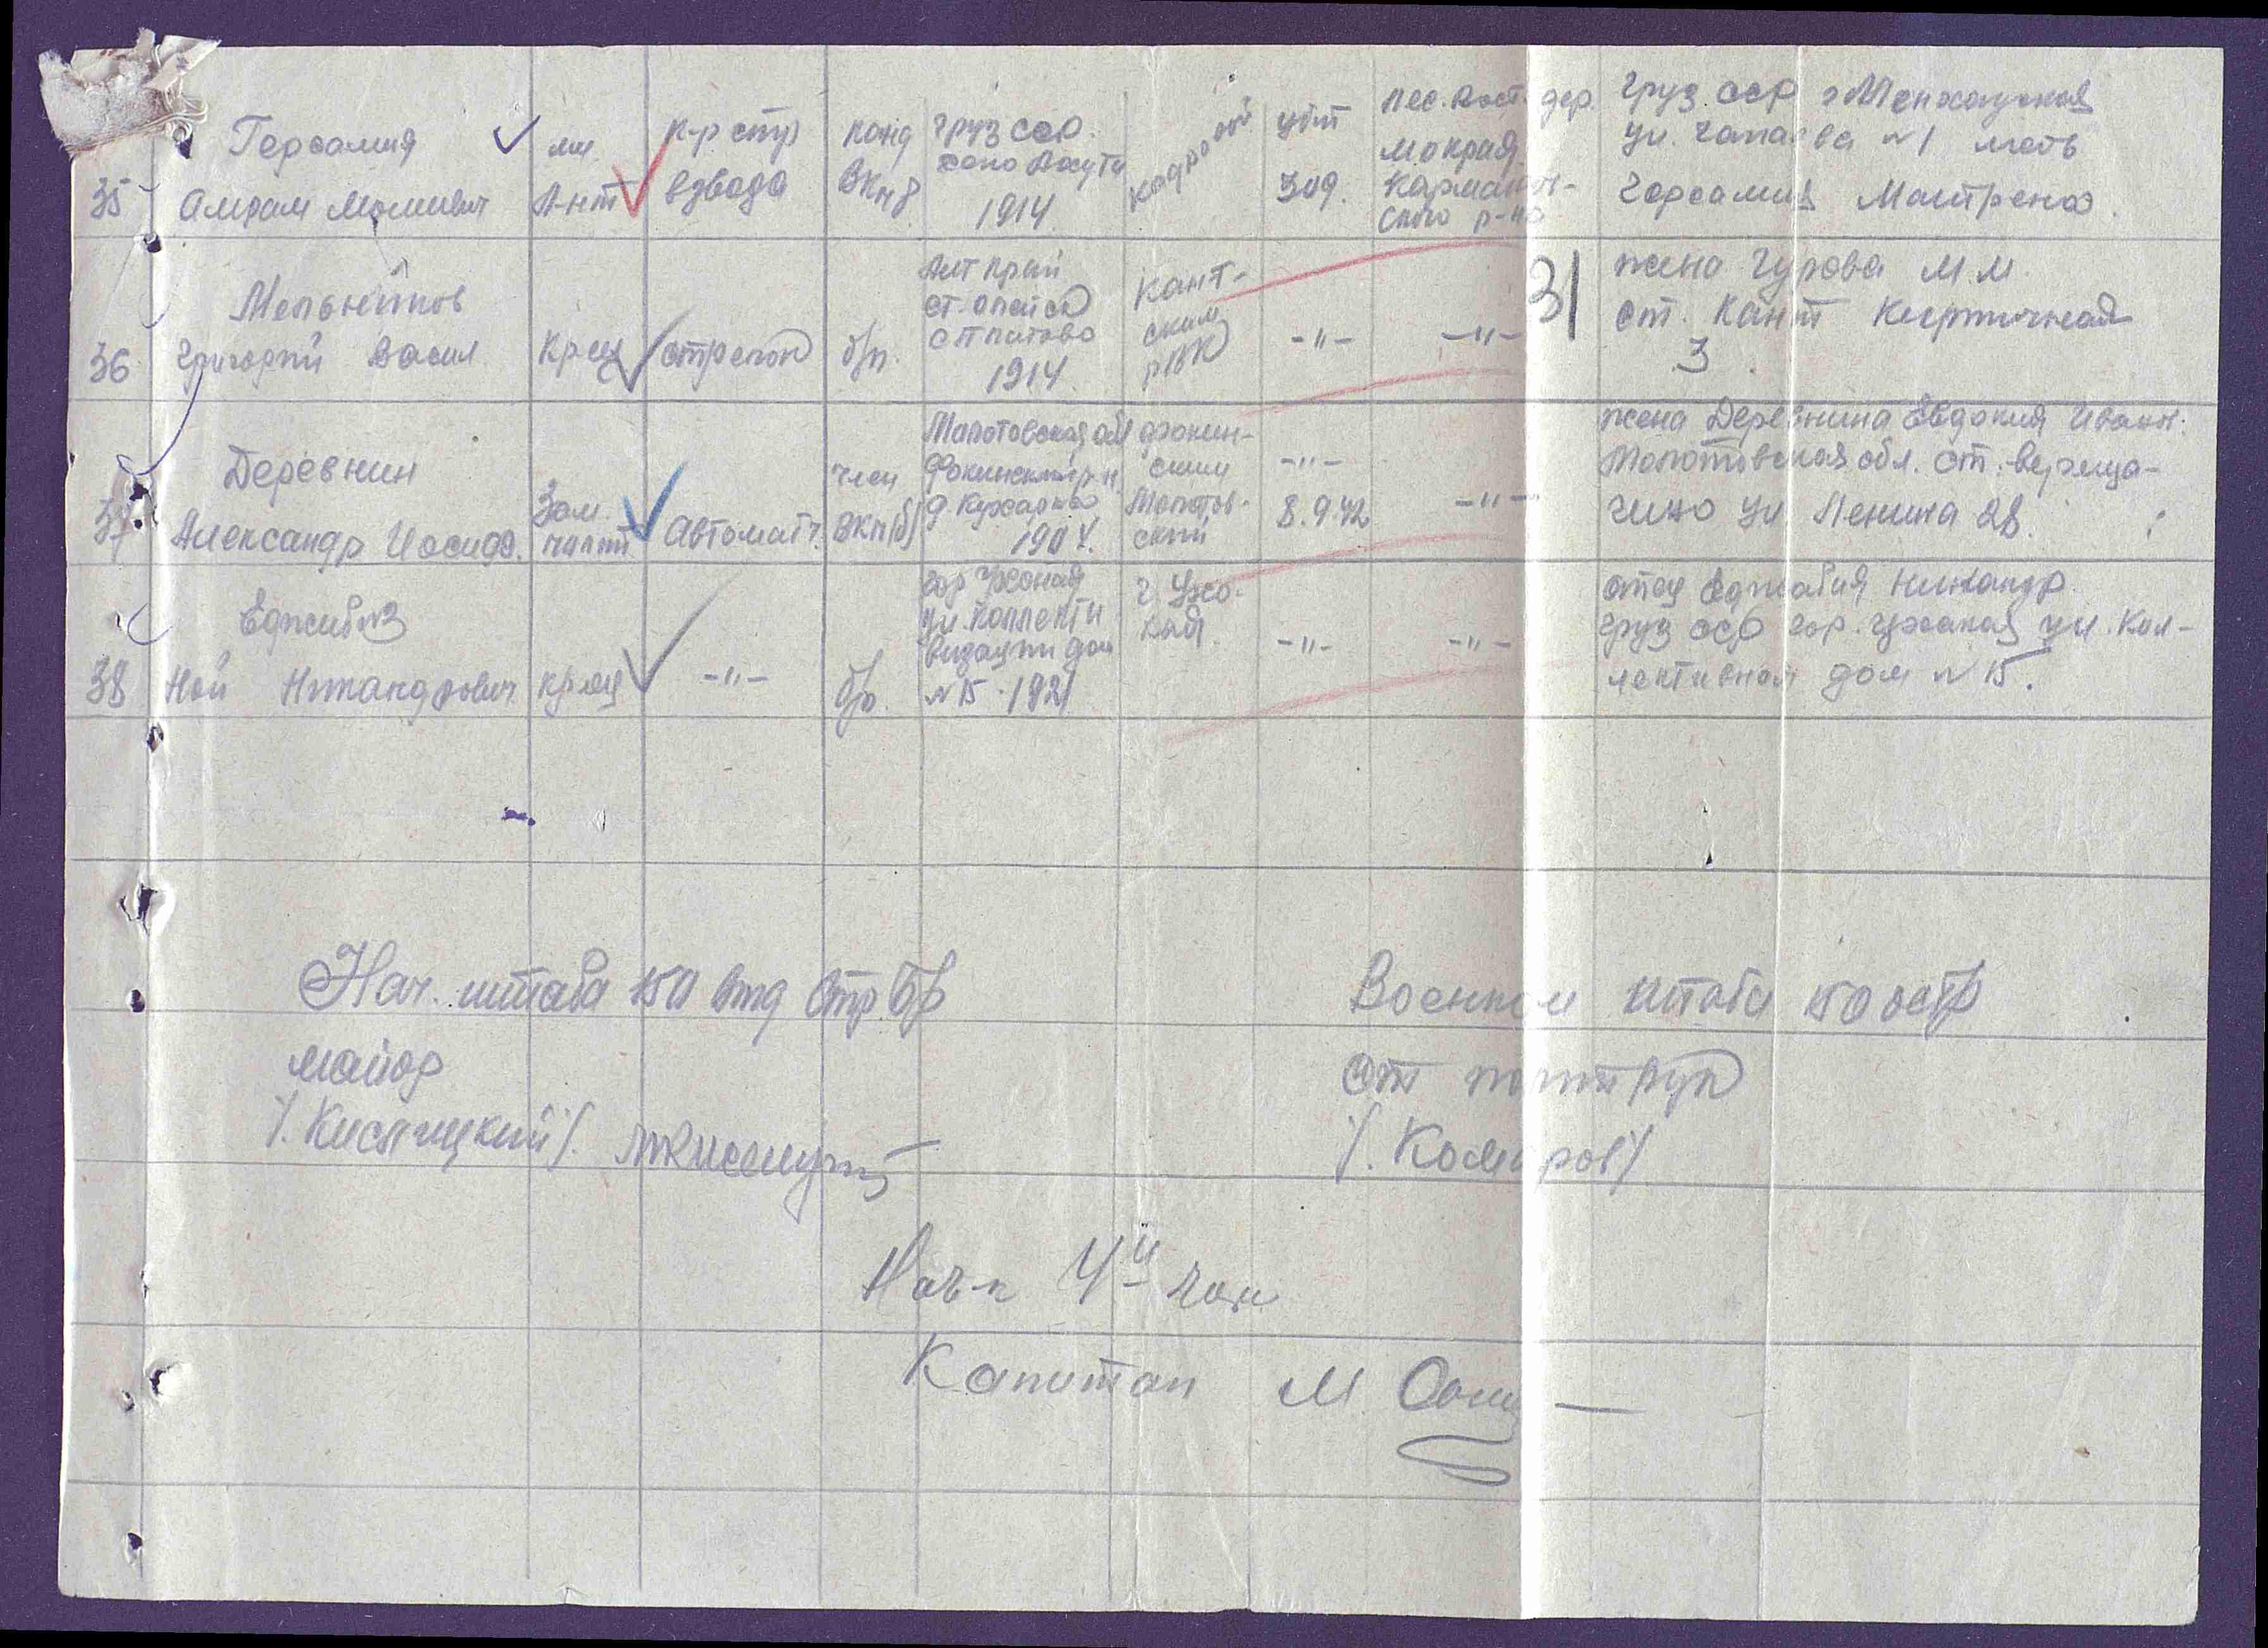 35 Герсамия мл. Ант к-р стр взвода канд ВКПб Груз ССР. 1914 Кадровой убит 30.9. лес. Вост. дер. Мокрая Карманов- ского р-на Груз ССР
ул. Чапаева №1 мать
Герсамия Матрена
36 Мельников
Григорий Васил кр-ец стрелок б/п. Алт край 1914 Кант-
ским
РВК -"- -"- жена Гурова М.М
ст. Кант Кирпичная
3
31
37 Деревнин
Александр Иосифо. Зам. полит Автоматч. член ВКП(б) Молотовская обл
Фокинский р-н 1904. Фокин-
ский
Молотов-
ский -"-
8.9.42 -"- жена Деревнина Евдокия Иванов.
Молотовская обл. ст. Вереща-
гино ул Ленина 28.
38 Ной Никандрович кр-ец -"- б/п. гор Цхакая
ул. Коллекти
визации дом
№15. 1921 г. Цха-
кая -"- -"- отец Еджибия Никандр.
Груз ССР гор. Цхакая ул. Кол-
лективной дом №15.
Нач. штаба 150 отд Стр Бр
майор
Военком штаба 150 осбр
Ст политрук
/. Комаров/
Нач-к 4й части
Капитан М.